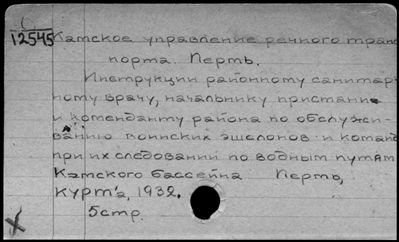 12545 Камское управление речного тран
порта. Пермь.
Инструкции районному санитар
ному врачу, начальнику пристани
и коменданту района по обслужи-
ванию воинских эшелонов и команд
при их следовании по водным путям
Камского бассейна Пермь,
Курт'а, 1932.
5стр.